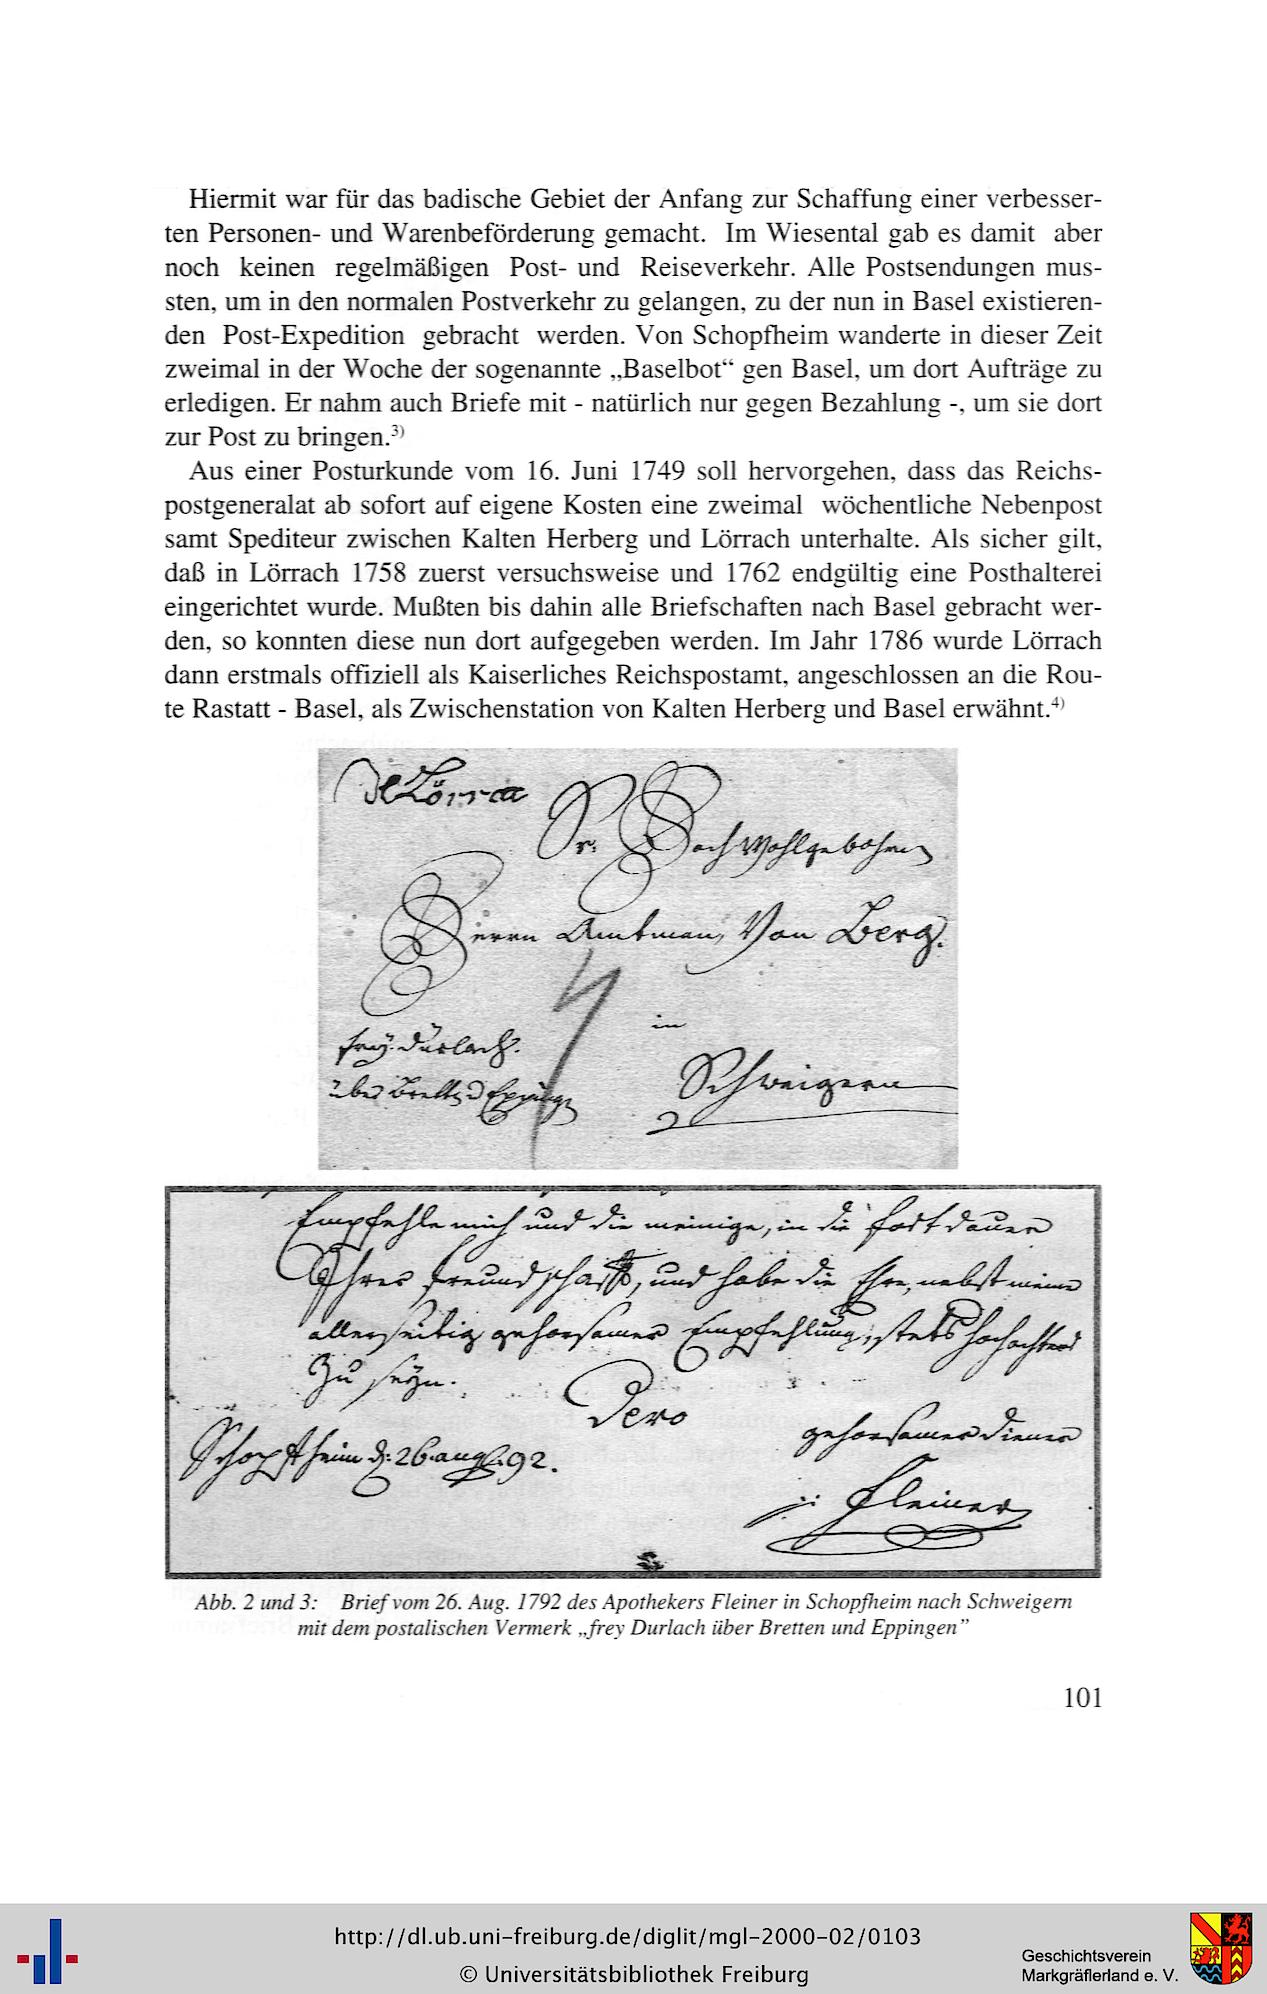 Hiermit war für das badische Gebiet der Anfang zur Schaffung einer verbesser-
ten Personen- und Warenbeförderung gemacht. Im Wiesental gab es damit aber
noch keinen regelmäßigen Post- und Reiseverkehr. Alle Postsendungen mus-
sten, um in den normalen Postverkehr zu gelangen, zu der nun in Basel existieren-
den Post-Expedition gebracht werden. Von Schopfheim wanderte in dieser Zeit
zweimal in der Woche der sogenannte „Baselbot“ gen Basel, um dort Aufträge zu
erledigen. Er nahm auch Briefe mit - natürlich nur gegen Bezahlung -, um sie dort
zur Post zu bringen.3)
Aus einer Posturkunde vom 16. Juni 1749 soll hervorgehen, dass das Reichs-
postgeneralat ab sofort auf eigene Kosten eine zweimal wöchentliche Nebenpost
samt Spediteur zwischen Kalten Herberg und Lörrach unterhalte. Als sicher gilt,
daß in Lörrach 1758 zuerst versuchsweise und 1762 endgültig eine Posthalterei
eingerichtet wurde. Mußten bis dahin alle Briefschaften nach Basel gebracht wer-
den, so konnten diese nun dort aufgegeben werden. Im Jahr 1786 wurde Lörrach
dann erstmals offiziell als Kaiserliches Reichspostamt, angeschlossen an die Rou-
te Rastatt - Basel, als Zwischenstation von Kalten Herberg und Basel erwähnt.4)
Sr. Hochwohlgebohren
Herrn Amtman, Von Berg.
in
frey. Durlach.
Schweigern
über Bretten Epping
Empfehle mich und die meinige, in die fortdauer
Ihrer freundschafft, und habe die Ehre, nebst meine
allerseitig gehorsamer Empfehlung, stets hochachtend
Zu seyn.
Dero
gehorsamer diener
Schopfheim d: 26. aug. 92.
Fleiner
Abb. 2 und 3: Brief vom 26. Aug. 1792 des Apothekers Fleiner in Schopfheim nach Schweigern
mit dem postalischen Vermerk „frey Durlach über Bretten und Eppingen”
101
http://dl.ub.uni-freiburg.de/diglit/mgl-2000-02/0103
© Universitätsbibliothek Freiburg
Geschichtsverein
Markgräflerland e. V.